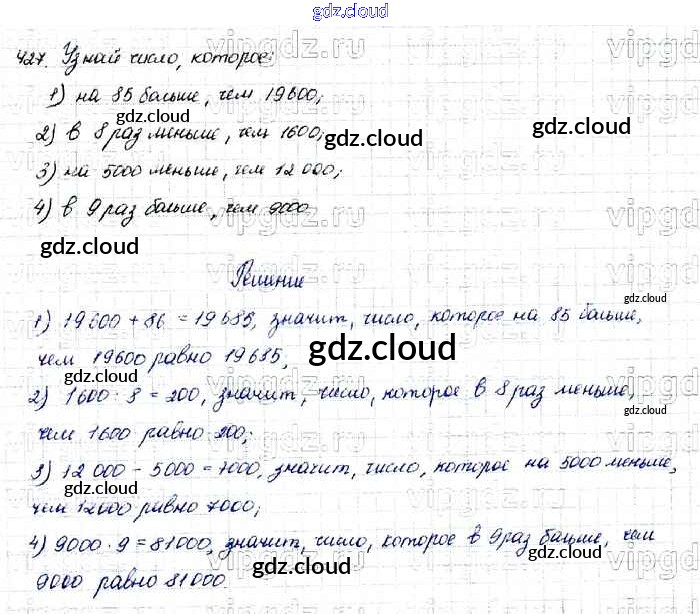 gdz.cloud
427. Узнай число, которое:
1) на 85 больше, чем 19600;
2) в 8 раз меньше, чем 1600;
gdz.cloud gdz.cloud
3) на 5000 меньше, чем 12 000;
4) в 9 раз больше, чем 9000
gdz.cloud
Решение
gdz.cloud
1) 19600 + 86 = 19685, значит, число, которое на 85 больше,
чем 19600 равно 19685,
gdz.cloud
gdz.cloud
2) 1600 : 8 = 200, значит, число, которое в 8 раз меньше,
gdz.cloud
чем 1600 равно 200;
3) 12 000 - 5000 = 7000, значит, число, которое на 5000 меньше,
gdz.cloud
чем 12000 равно 7000;
gdz.cloud
4) 9000 · 9 = 81000, значит, число, которое в 9 раз больше, чем
9000 равно 81000
gdz.cloud gdz.cloud